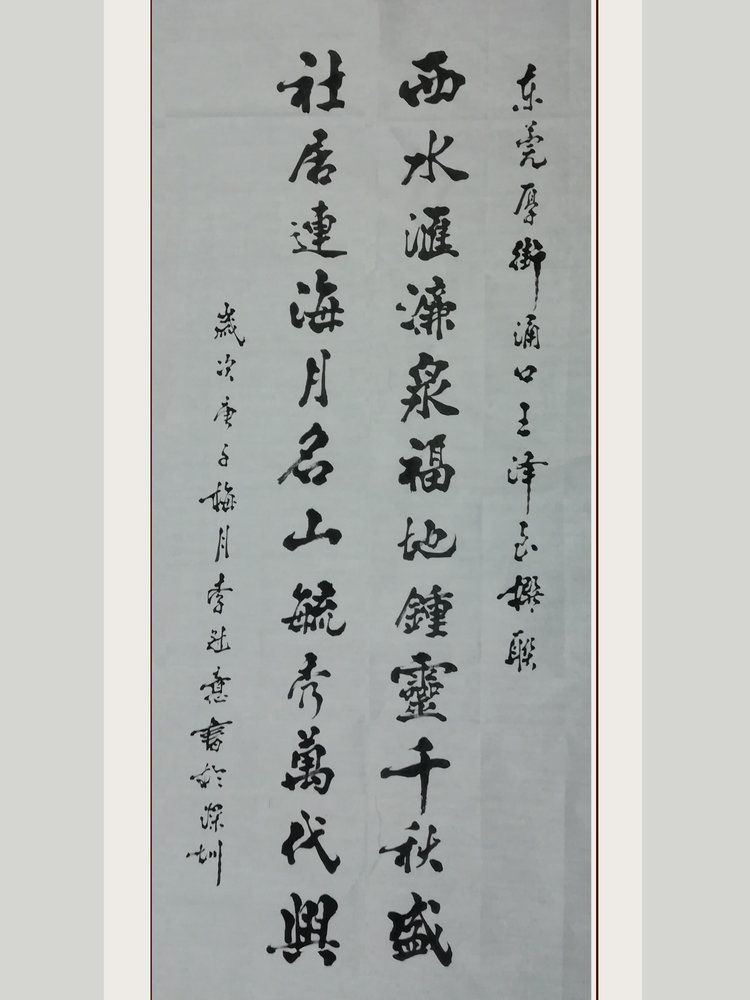 东莞厚街涌口王泽良撰联
西水滙濂泉福地鍾靈千秋盛
社居連海月名山毓秀萬代興
歲次庚子梅月李社意書於深圳